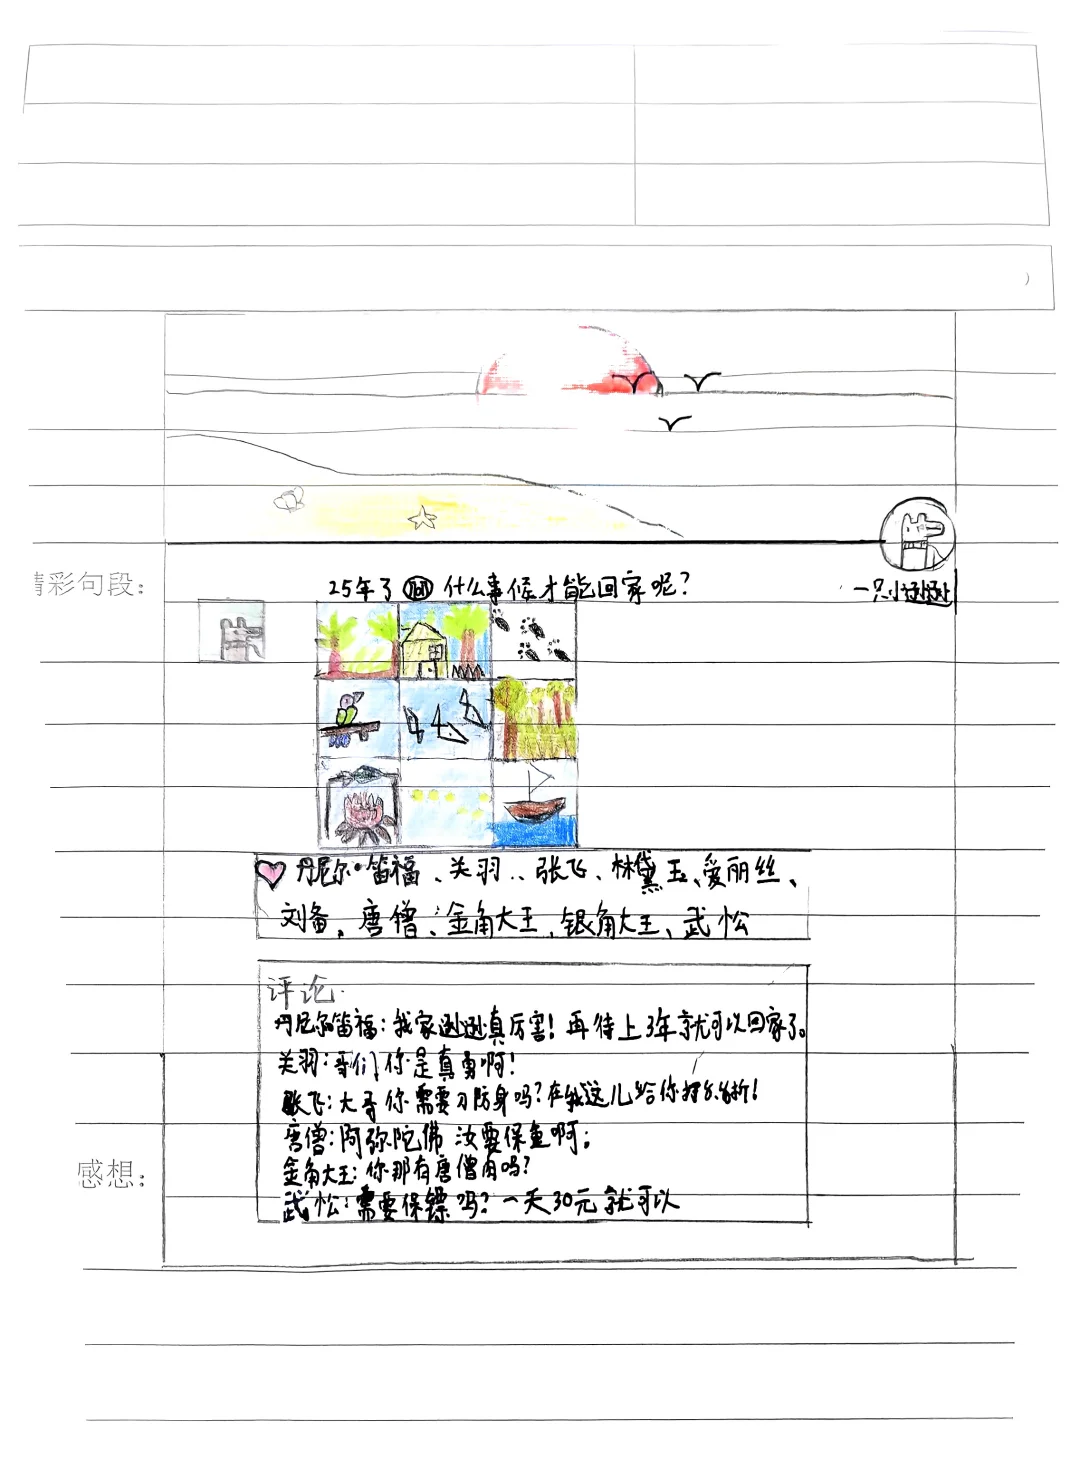 25年了 什么事候才能回家呢?
一只小逊逊
精彩句段:
丹尼尔·笛福、关羽、张飞、林黛玉、爱丽丝、
刘备、唐僧、金角大王、银角大王、武松
评论
丹尼尔笛福:我家逊逊真厉害!再待上3年就可以回家了。
关羽:哥们你是真勇啊!
张飞:大哥你需要刀防身吗?在我这儿给你打折!
唐僧:阿弥陀佛 汝要保重啊;
金角大王:你那有唐僧肉吗?
感想:
武松:需要保镖吗?一天30元就可以